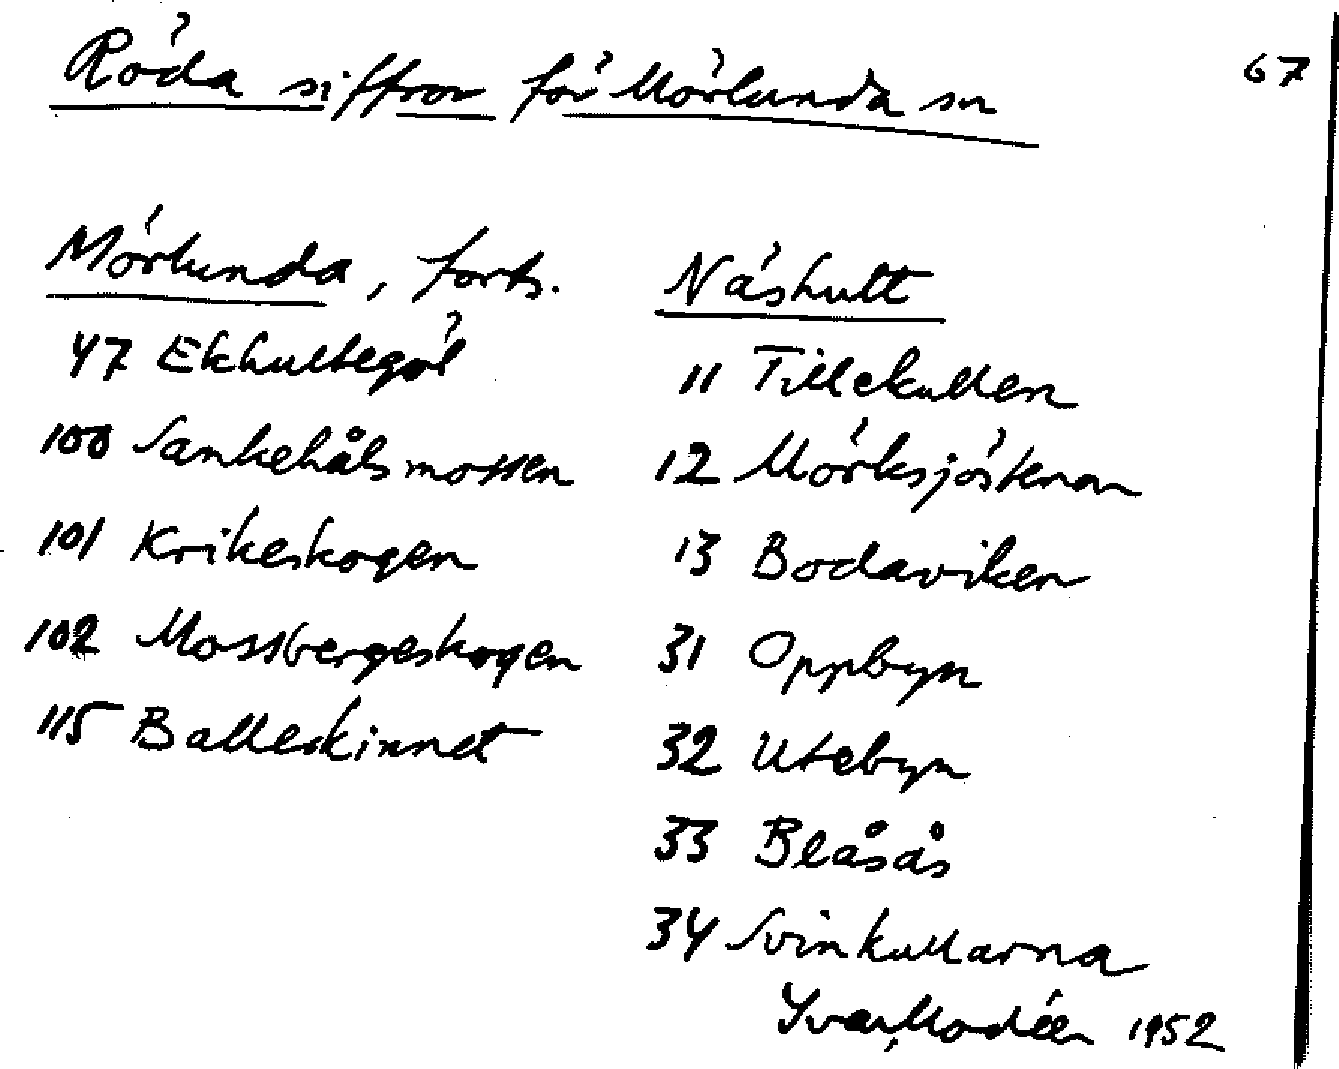 Röda siffror för Mörlunda sn
67
Mörlunda, forts.
47 Ekhultegöl
100 Sankehålsmossen
101 Krikeskogen
102 Mossbergeskogen
115 Balleskinnet
Näshult
11 Tillekullen
12 Mörksjöstenar
13 Bodaviken
31 Oppbyn
32 Utebyn
33 Blåsås
34 Svinkullarna
Yvar Modéer 1952